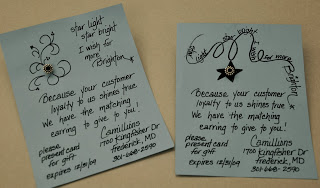 star light
star bright
I wish for
more
Brighton
Because your customer
loyalty to us shines true
We have the matching
earring to give to you!
please
present card
for gift
expires 12/31/09
Camillions
1700 Kingfisher Dr
frederick, MD
301-668-2590
star light
star bright
I wish for more
Brighton
Because your customer
loyalty to us shines true
We have the matching
earring to give to you!
please
present card
for gift
expires 12/31/09
Camillions
1700 Kingfisher Dr
frederick, MD
301-668-2590